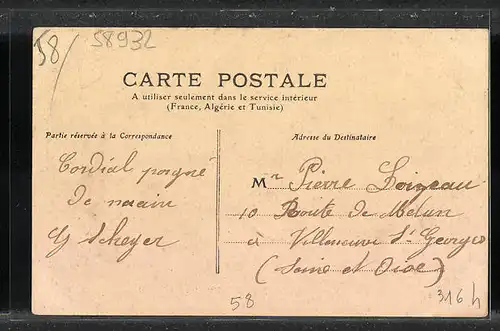 58/ 58932
CARTE POSTALE
A utiliser seulement dans le service intérieur
(France, Algérie et Tunisie)
Partie réservée à la Correspondance
Adresse du Destinataire
Cordial poigné
de main
G Scheyer
Mr Pierre Loizeau
10 Route de Melun
à Villeneuve St Georges
(Seine et Oise)
58
316h